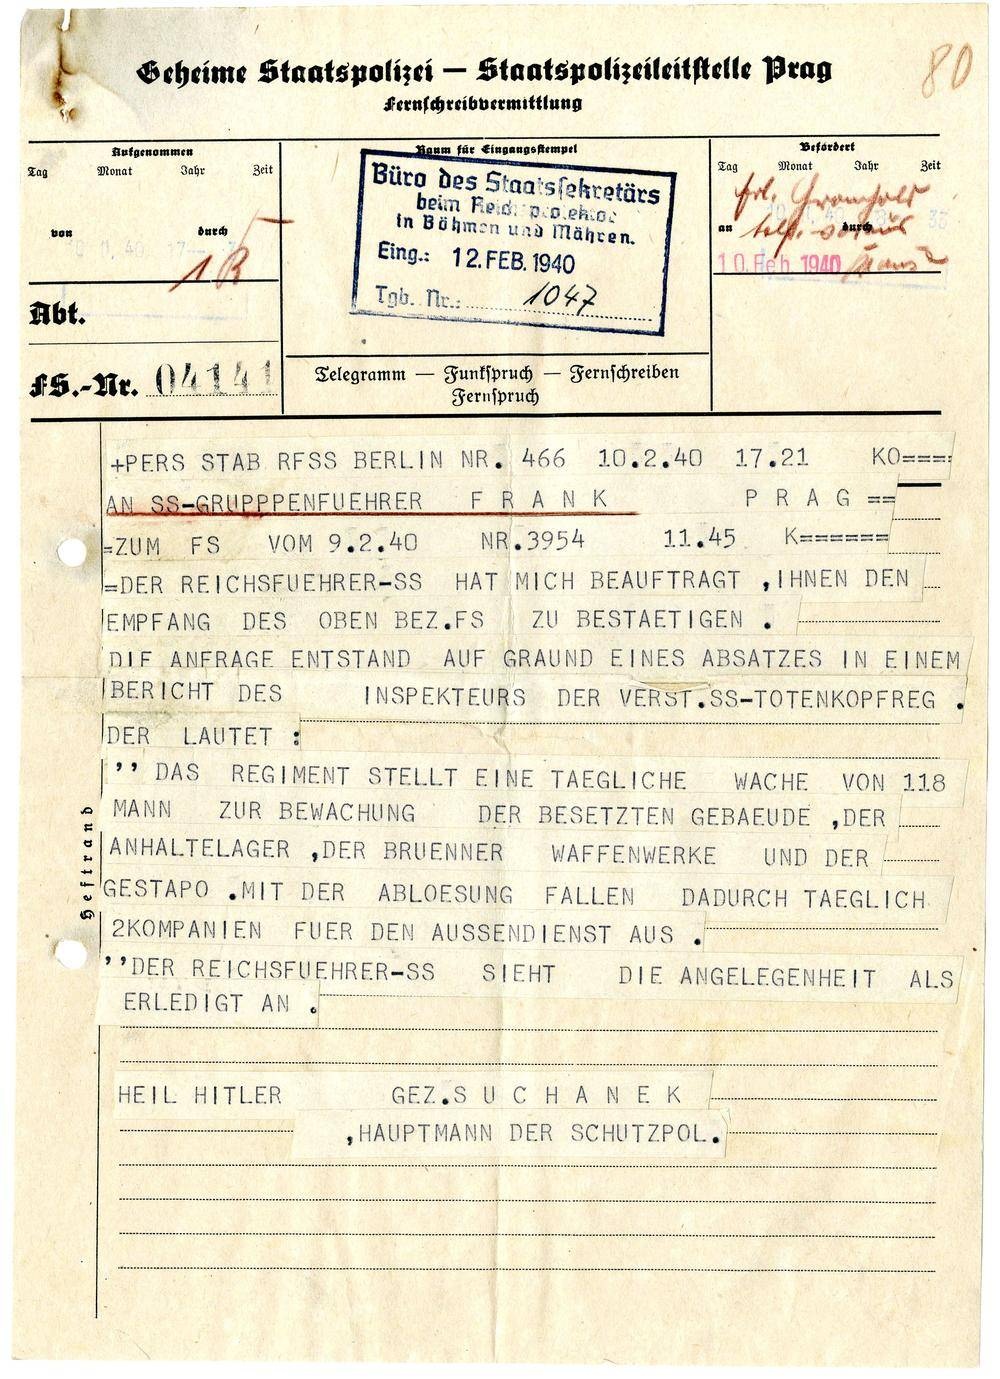 80
Geheime Staatspolizei — Staatspolizeileitstelle Prag
Fernschreibvermittlung
Aufgenommen
Tag Monat Jahr Zeit
von durch
Raum für Eingangsstempel
Büro des Staatssekretärs
beim Reichsprotektor
in Böhmen und Mähren.
Eing.: 12. FEB. 1940
Tgb. Nr.: 1047
Befördert
Tag Monat Jahr Zeit
an durch
10. Feb. 1940
Abt.
FS.-Nr. 04141
Telegramm — Funkspruch — Fernschreiben
Fernspruch
+PERS STAB RFSS BERLIN NR. 466 10.2.40 17.21 KO====
AN SS-GRUPPPENFUEHRER F R A N K P R A G ==
=ZUM FS VOM 9.2.40 NR.3954 11.45 K=======
=DER REICHSFUEHRER-SS HAT MICH BEAUFTRAGT ,IHNEN DEN
EMPFANG DES OBEN BEZ.FS ZU BESTAETIGEN .
DIE ANFRAGE ENTSTAND AUF GRAUND EINES ABSATZES IN EINEM
BERICHT DES INSPEKTEURS DER VERST.SS-TOTENKOPFREG .
DER LAUTET :
’’ DAS REGIMENT STELLT EINE TAEGLICHE WACHE VON 118
MANN ZUR BEWACHUNG DER BESETZTEN GEBAEUDE ,DER
ANHALTELAGER ,DER BRUENNER WAFFENWERKE UND DER
GESTAPO .MIT DER ABLOESUNG FALLEN DADURCH TAEGLICH
2KOMPANIEN FUER DEN AUSSENDIENST AUS .
’’DER REICHSFUEHRER-SS SIEHT DIE ANGELEGENHEIT ALS
ERLEDIGT AN .
HEIL HITLER GEZ.S U C H A N E K
,HAUPTMANN DER SCHUTZPOL.
Heftrand